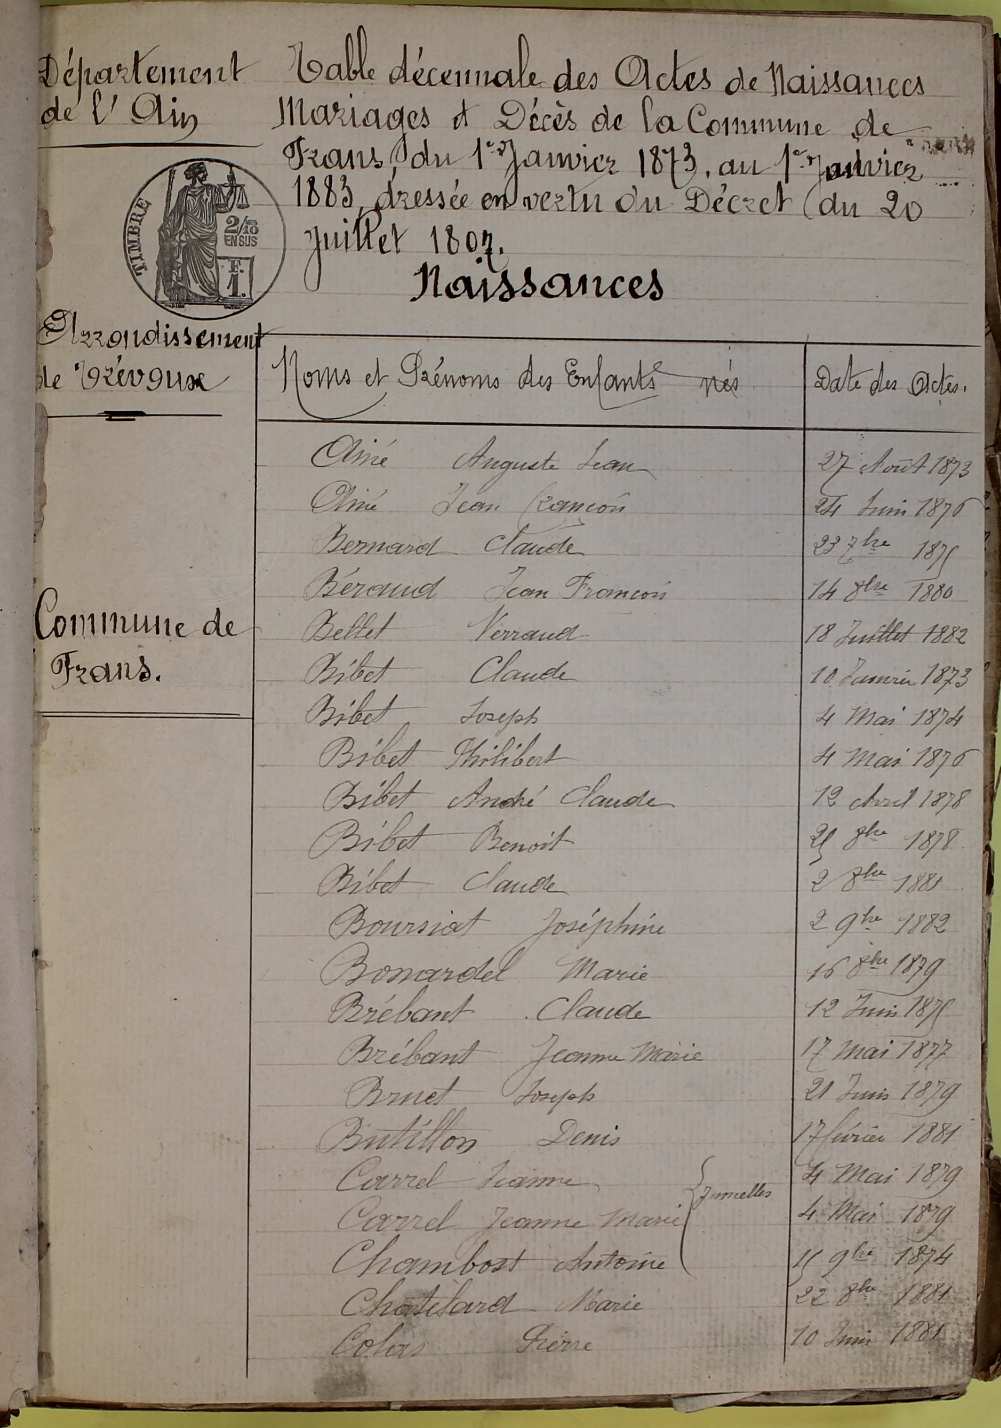 Département
de l'Ain
Table décennale des Actes de Naissances
Mariages et Décès de la Commune de
Frans du 1er Janvier 1873, au 1er Janvier
1883, dressée en vertu du Décret du 20
Juillet 1807.
TIMBRE
2/10
EN SUS
F.
1.
Naissances
Arrondissement
de Trévoux
Commune de
Frans.
Noms et Prénoms des Enfants nés Date des Actes.
Ainé Auguste Jean 27 Août 1873
Ainé Jean François 24 Juin 1876
Bernard Claude 23 7bre 1875
Béraud Jean François 14 8bre 1880
Bellet Verraud 18 Juillet 1882
Bibet Claude 10 Janvier 1873
Bibet Joseph 4 Mai 1874
Bibet Philibert 4 Mai 1876
Bibet André Claude 12 Avril 1878
Bibet Benoit 8bre 1878
Bibet Claude 2 8bre 1881
Boursiat Joséphine 2 9bre 1882
Bonnardel Marie 16 8bre 1879
Brébant Claude 12 Juin 1875
Brébant Jeanne Marie 17 Mai 1877
Bruet Joseph 21 Juin 1879
Butillon Denis 17 février 1881
Carrel Jeanne 4 Mai 1879
Jumelles
Carrel Jeanne Marie 4 Mai 1879
Chambost Antoine 11 9bre 1874
Chatelard Marie 22 8bre 1881
Colas Pierre 10 Juin 1881